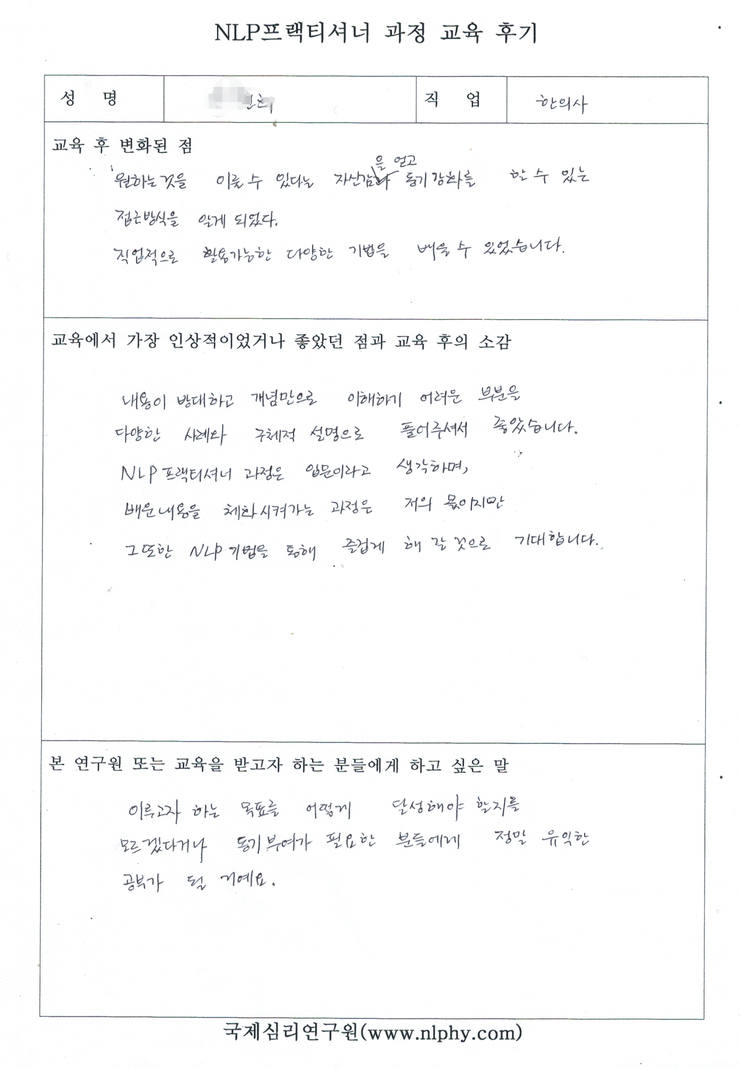 NLP프랙티셔너 과정 교육 후기
성 명 직 업 한의사
교육 후 변화된 점
을 얻고
원하는것을 이룰 수 있다는 자신감 동기강화를 할 수 있는
접근방식을 알게 되었다.
직업적으로 활용가능한 다양한 기법을 배울 수 있었습니다.
교육에서 가장 인상적이었거나 좋았던 점과 교육 후의 소감
내용이 방대하고 개념만으로 이해하기 어려운 부분을
다양한 사례와 구체적 설명으로 풀어주셔서 좋았습니다.
NLP 프랙티셔너 과정은 입문이라고 생각하며,
배운내용을 체화시켜가는 과정은 저의 몫이지만
그또한 NLP 기법을 통해 즐겁게 해 갈 것으로 기대합니다.
본 연구원 또는 교육을 받고자 하는 분들에게 하고 싶은 말
이루고자 하는 목표를 어떻게 달성해야 할지를
모르겠다거나 동기부여가 필요한 분들에게 정말 유익한
공부가 될 거예요.
국제심리연구원(www.nlphy.com)